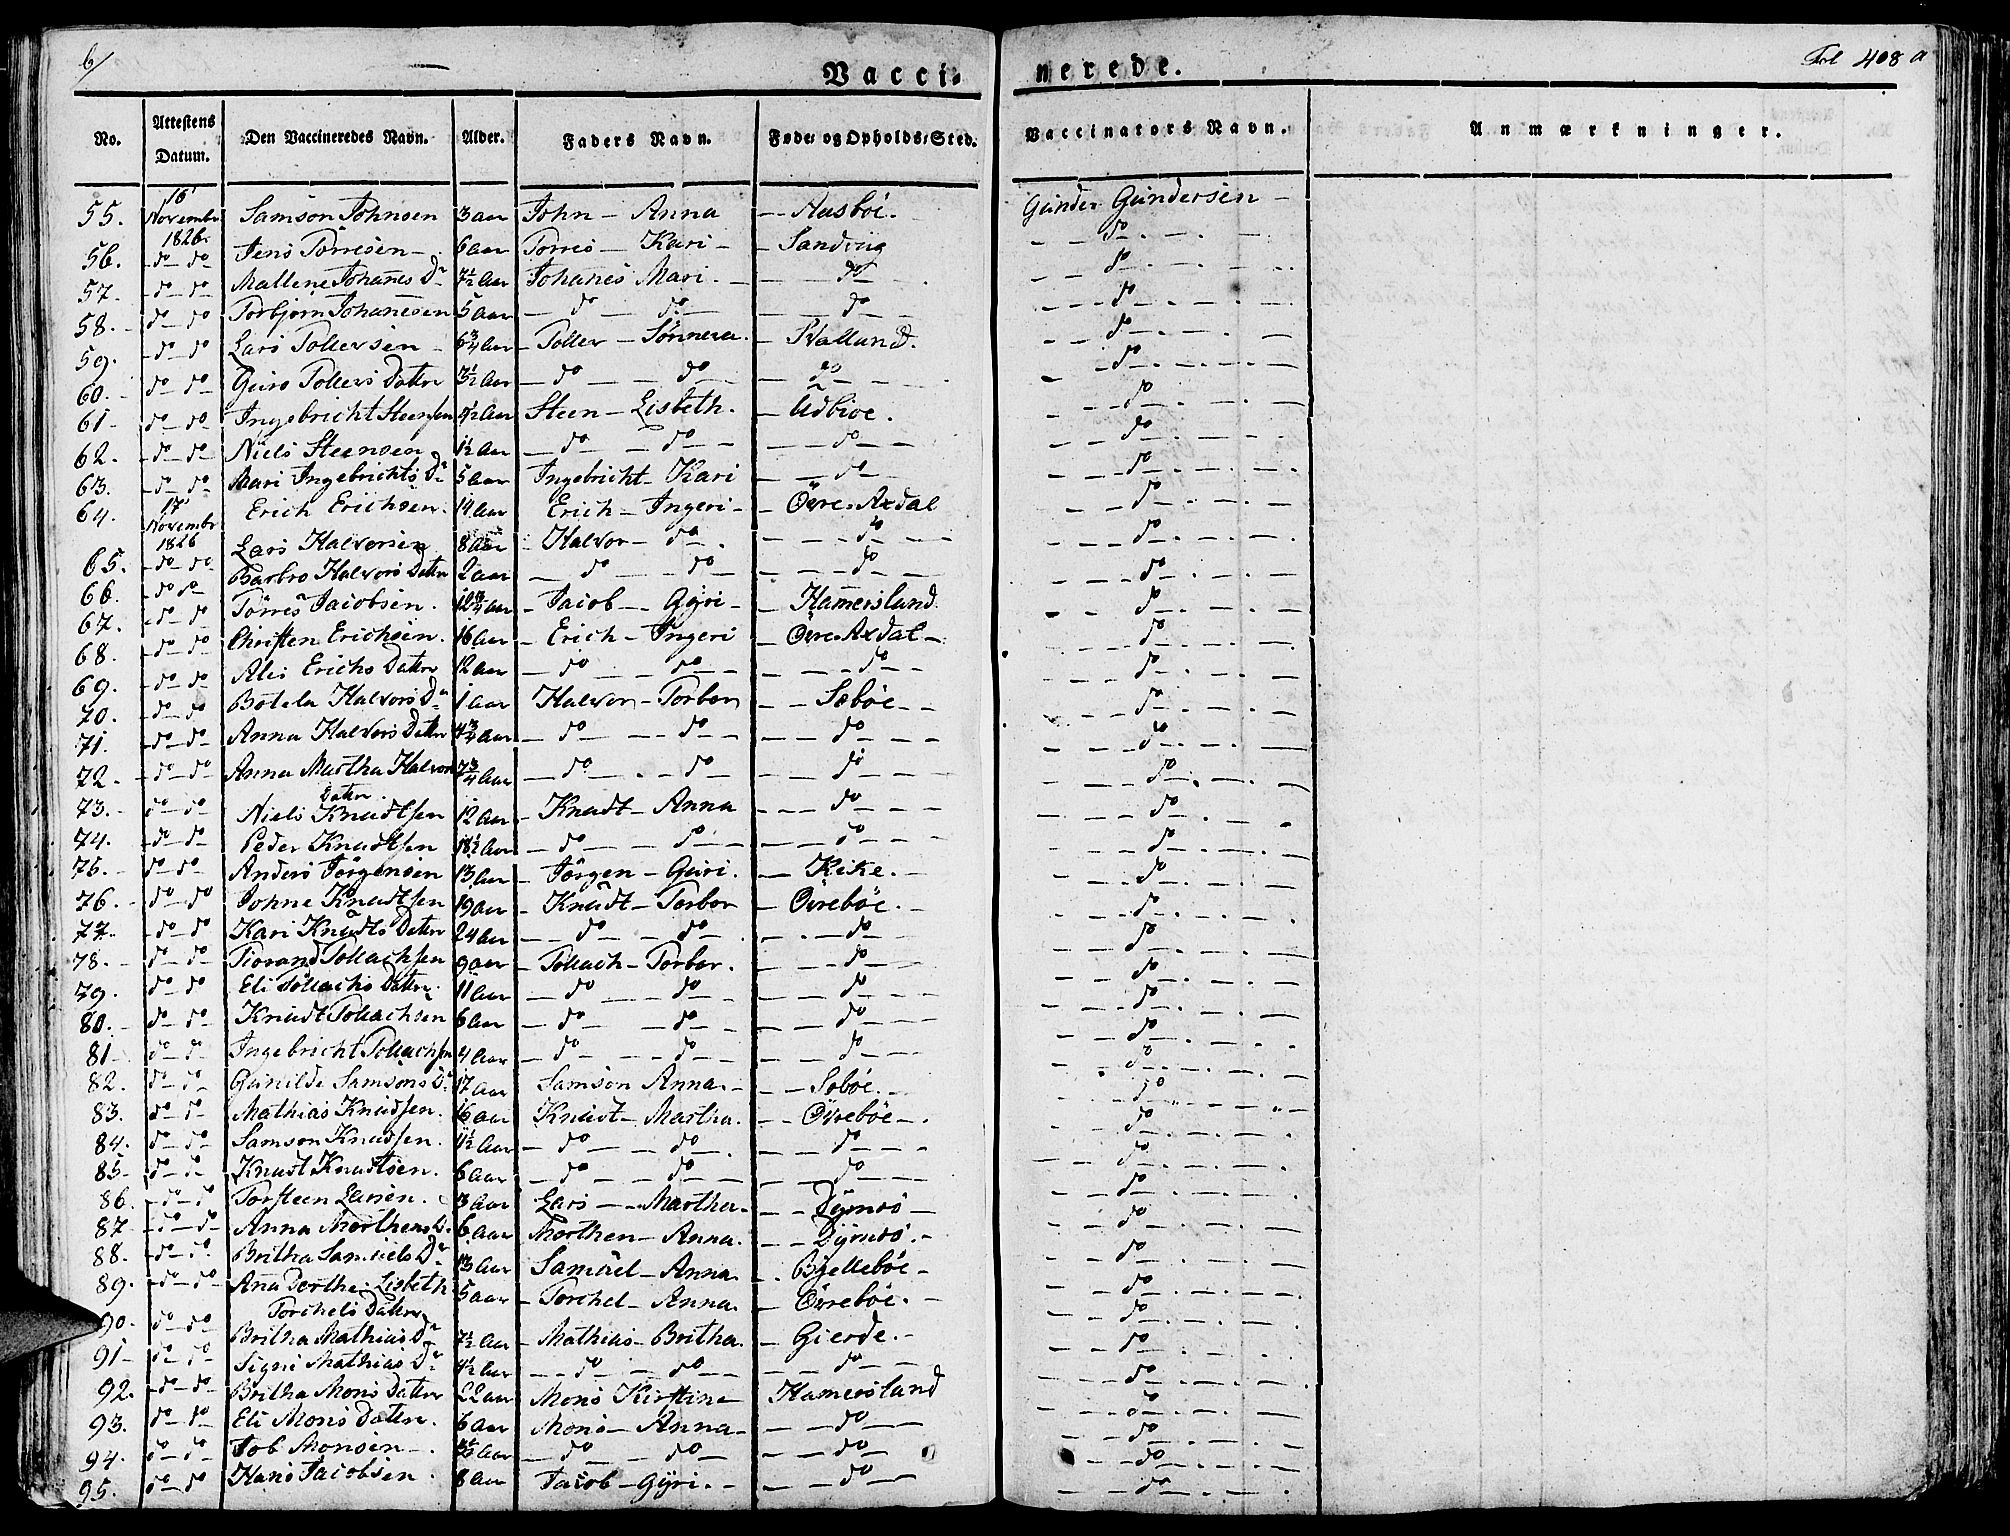 6/
Vacci- nerede. Fol 408 a
No. Attestens Datum. Den Vaccineredes Navn. Alder. Faders Navn. Føde- og Opholds-Sted. Vaccinators Navn. Anmærkninger.
55. 16 Novembr 1826. Samson Johnsen 3 aar John - Anna - Aasböe. Gunder Gundersen -
56. - do - do Jens Törresen - 6 aar Torres - Kari - - Sandvig - do -
57. - do - do Mallene Johanes D. 7½ Aar Johanes Mari. - do - - do -
58. - do - do Torbjørn Johanesen 5 aar - do - do - do - do -
59. - do - do Lars Tollevsen - 6¾ Aar - Tollev - Sönneva. - Skallund. - do -
60. - do - do Guro Tollevs Datter 3½ Aar - do - do - do - - do -
61 - do - do Ingebricht Steensen 4½ Aar Steen - Lisbeth. - Udbioe. - do -
62. - do - do Niels Steensen 1½ Aar - do - do - - do - - do -
63. - do - do Mari Ingebrichts D. 5 aar Ingebricht - Kari - do - - do -
64. 17 Novembr 1826 Erich Erichsen. 14 aar Erich - Ingeri - - Övre-Axdal - do -
65. - do - do Lars Halvorsen 8 Aar - Halvor - do. - do - - do -
66. - do - do Barbro Halvors Datter 2 aar - do - do - do - - do -
67. - do - do Törres Jacobsen. 12¾ aar - Jacob - Gyri - - Hamersland. - do -
68. - do - do Christen Erichsen. 16 aar - Erich - Ingeri - Övre-Axdal - - do -
69. - do - do Alis Erichs Datter 12 aar - do - do - - do - - do -
70. - do - do Botela Halvors D. 1 aar Halvor - Torbor - Seböe. - - do -
71. - do - do Anna Halvors Datter 4¾ Aar - do - do - - do - - do -
72. - do - do Anna Martha Halvors Datter. 7¾ Aar - do - do - - do - - do -
73. do - do - Niels Knudtsen 12 Aar - Knudt - Anna - do - - do -
74. - do - do Peder Knudtsen 18½ Aar - do - do - - do - - do -
75. - do - do Anders Jörgensen 13 Aar - Jörgen - Guri. - Kike. - - do -
76. - do - do Johne Knudtsen 19 aar - Knudt - Torbor - Övreböe. - do -
77. - do - do Kari Knudts Datter 24 Aar - do - do - do - - do -
78. - do - do Torand Tollachsen 9 aar - Tollach - Torbor. - do - - do -
79. - do - do Eli Tollachs Datter. 11 Aar - do - do - - do - - do -
80. - do - do Knudt Tollachsen 6 aar - do - do - - do - - do -
81 - do - do Ingebricht Tollachsen 4 Aar - do - do - - do - - do -
82. - do - do Gunilde Samsons D. 17 aar Samson Anna. - - Soböe. - do -
83. - do - do - Mathias Knudsen. 16 aar Knudt - Martha. - Övreböe - . - do -
84. - do - do Samson Knudsen. 4½ Aar - do - do - - do - - do -
85 - do - do Knudt Knudtsen. 6 aar - do - do - - do - - do -
86. - do - do Torsteen Larsen. 13 Aar Lars - Martha - - Dyrnes - - do -
87. - do - do - Anna Morthens D. 6 aar Morthen - Anna. - Dyrnes. - - do -
88. - do - do. Britha Samuels D. 13 Aar Samuel - Anna. - Bjelleböe - - do -
89. - do - do - Ana Dorthe Lisbeth Torchels Datter 5 aar - Torchel - Anna. - Övreböe. - - do -
90. - do - do Britha Mathias D. 7½ Aar - Mathias - Britha. - Gierde. - - do -
91 - do - do Signi Mathias D. 4½ Aar - do - do - - do - - do -
92. - do - do Britha Mons Datter 22 aar Mons Kirstine - Hamersland - do -
93. - do - do Eli Mons Datter. 6 aar Mons - Anna - - do - - do -
94. do - do Job Monsen - - do - do - - do - - do -
95. do - do Hans Jacobsen. 8 Aar Jacob - Gyri. - - do - - do -